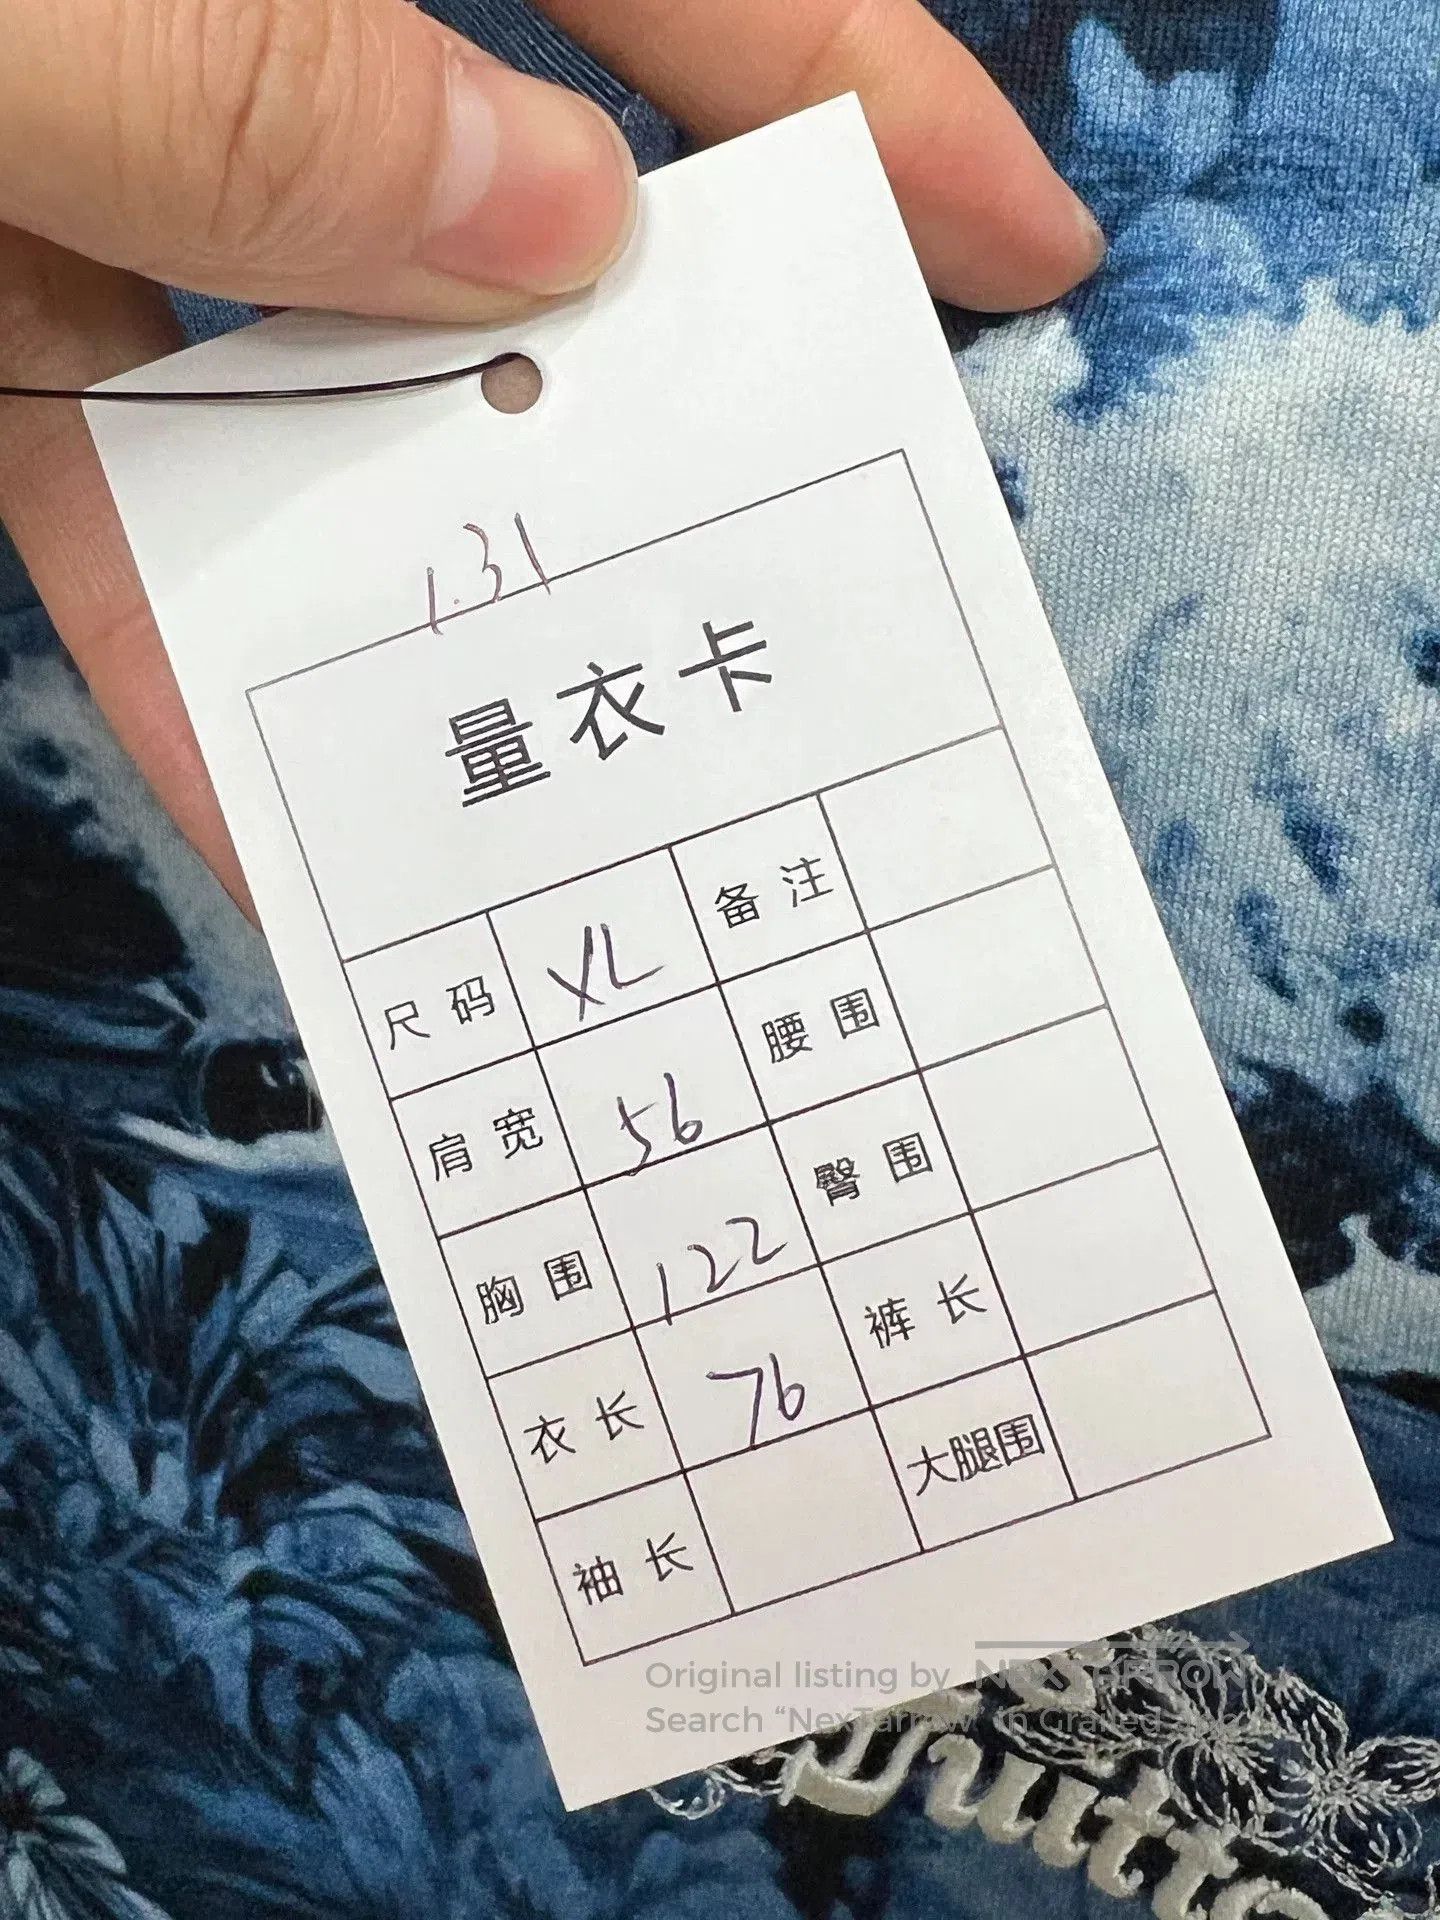 1.31
量衣卡
尺码 XL 备注
肩宽 56 腰围
胸围 122 臀围
衣长 76 裤长
袖长 大腿围
Original listing by NEXTARROW
Search “NexTarrow” in Grailed app